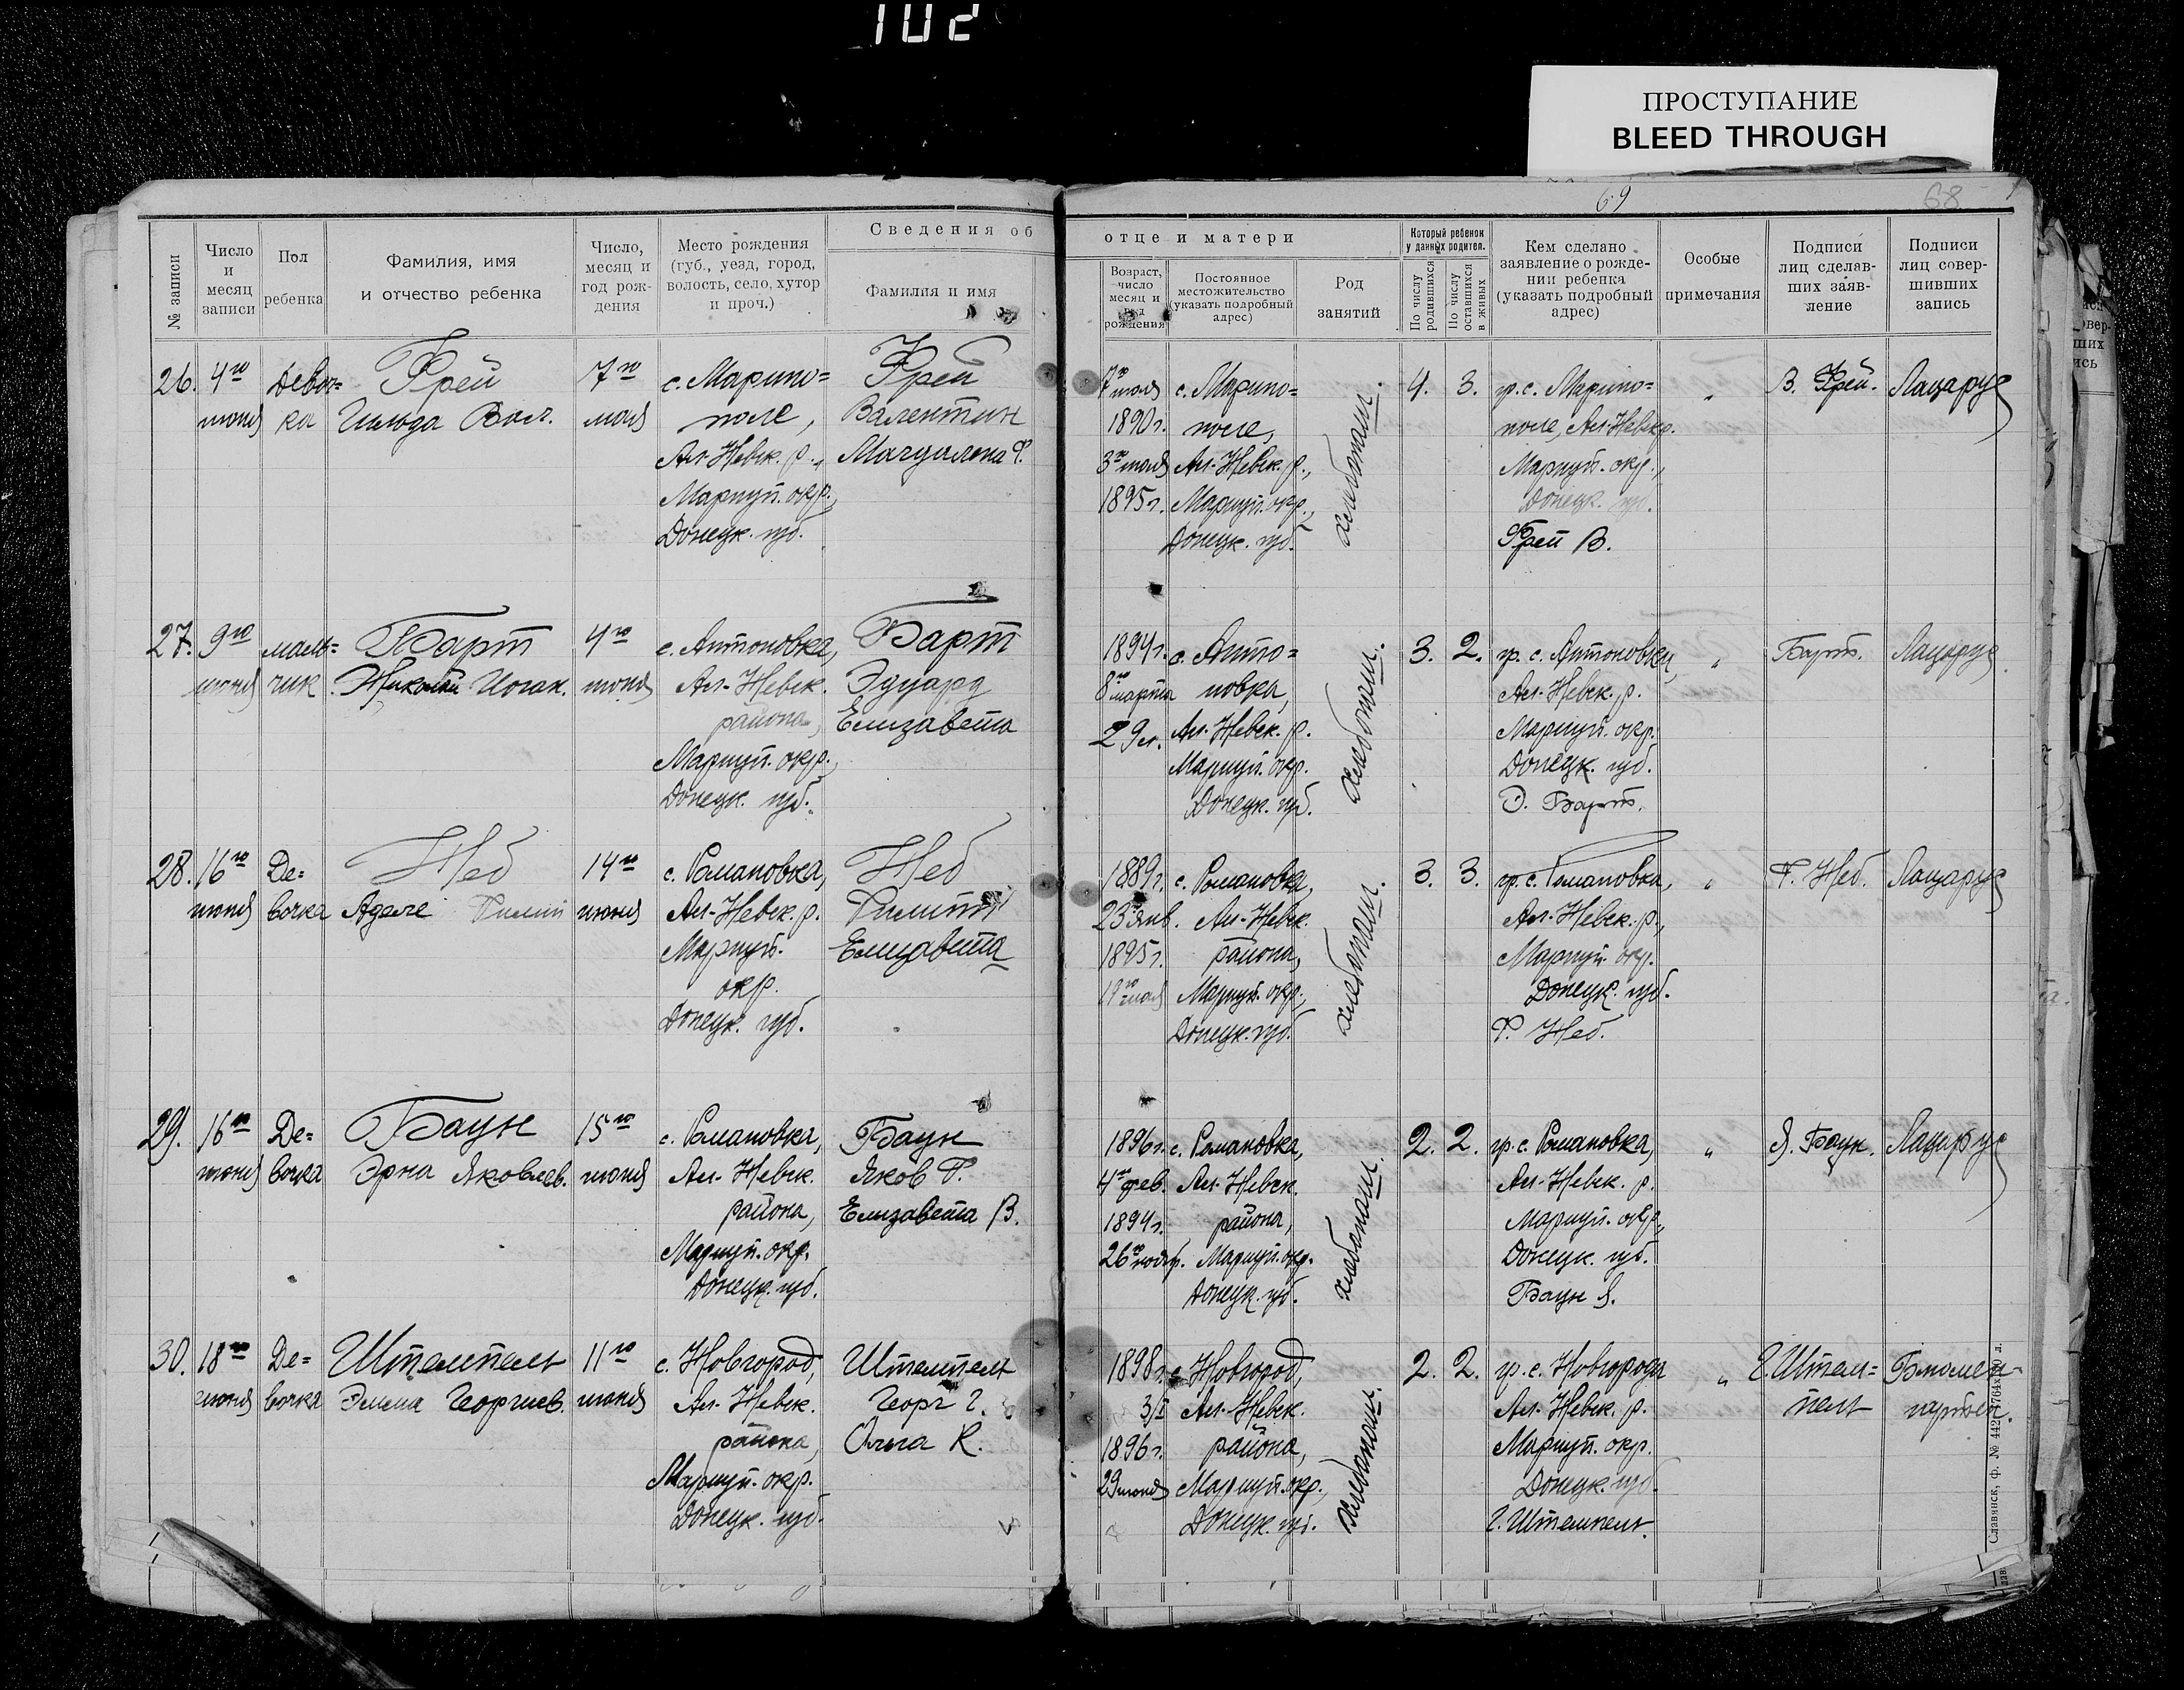 102
ПРОСТУПАНИЕ
BLEED THROUGH
69
68
№ записи
Число и месяц записи
Пол ребенка
Фамилия, имя и отчество ребенка
Число, месяц и год рождения
Место рождения (губ., уезд, город, волость, село, хутор и проч.)
Сведения об отце и матери
Фамилия и имя
Возраст, число месяц и год рождения
Постоянное местожительство (указать подробный адрес)
Род занятий
Который ребенок у данных родител.
По числу родившихся
По числу оставшихся в живых
Кем сделано заявление о рождении ребенка (указать подробный адрес)
Особые примечания
Подписи лиц сделавших заявление
Подписи лиц совершивших запись
26. 4го Девоч= Фрей 7го с. Марино= Фрей
июня ка Гильда Вал. мая поле, Валентин
Ал-Невск. р., Магдалена Ф.
Мариуп. окр.,
Донецк. губ.
7го мая с. Марино= 4. 3. гр. с. Марино= „ В. Фрей. Лацарус
1890г. поле, поле, Ал-Невск р.
3го мая Ал-Невск. р., Мариуп. окр.,
1895г. Мариуп. окр., Донецк. губ.
Донецк. губ. Фрей В.
хлебопаш.
27. 9го маль= Барт 4го с. Антоновка, Барт
июня чик Николай Иоган. июня Ал-Невск. Эдуард
района, Елизавета
Мариуп. окр.,
Донецк. губ.
1894г. с. Анто= 3. 2. гр. с. Антоновка, „ Барт. Лацарус
8го марта новка, Ал-Невск. р.
29л. Ал-Невск. р. Мариуп. окр.
Мариуп. окр. Донецк. губ.
Донецк. губ. Э. Барт.
хлебопаш.
28. 16го Де= Неб 14го с. Романовка, Неб
июня вочка Аделе Филип июня Ал-Невск. р. Филипп
Мариуп. Елизавета
окр.
Донецк. губ.
1889г. с. Романовка, 3. 3. гр. с. Романовка, „ Ф. Неб. Лацарус
23го янв. Ал-Невск. Ал-Невск. р.,
1895г. района, Мариуп. окр.
19го мая Мариуп. окр., Донецк. губ.
Донецк. губ. Ф. Неб.
хлебопаш.
29. 16го Де= Баун 15го с. Романовка, Баун
июня вочка Эрна Яковлев. июня Ал-Невск. Яков Ф.
района, Елизавета В.
Мариуп. окр.
Донецк. губ.
1896г. с. Романовка, 2. 2. гр. с. Романовка, „ Я. Баун. Лацарус
4го фев. Ал-Невск. Ал-Невск. р.
1894г. района, Мариуп. окр.,
26го нояб. Мариуп. окр. Донецк. губ.
Донецк. губ. Баун Я.
хлебопаш.
30. 18го Де= Штемпель 11го с. Новгород, Штемпель
июня вочка Эмма Георгиев. июня Ал-Невск. Георг Г.
района, Ольга К.
Мариуп. окр.
Донецк. губ.
1898г. с. Новгород, 2. 2. гр. с. Новгорода „ Г. Штем= Блюмен-
3/I Ал-Невск. Ал-Невск. р. пель гартен.
1896г. района, Мариуп. окр.
29 июня Мариуп. окр., Донецк. губ.
Донецк. губ. Г. Штемпель.
хлебопаш.